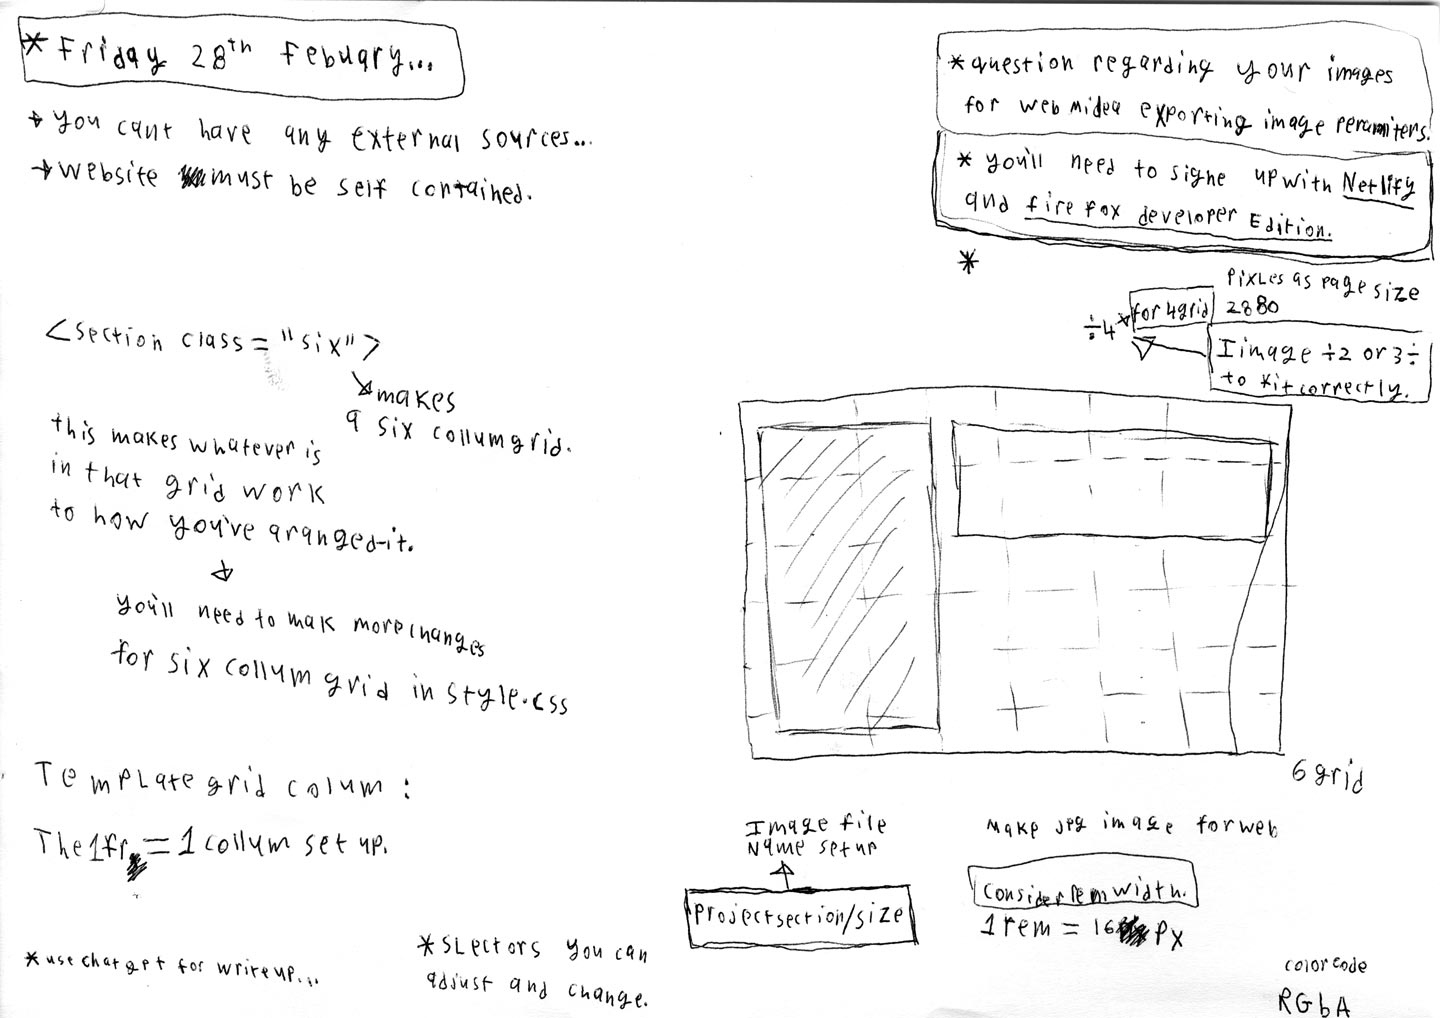 * Friday 28th Febuary...
→ you cant have any external sources...
→ website must be self contained.
* question regarding your images
for web midea exporting image peramiters.
* you'll need to signe up with Netlify
and fire fox developer Edition.
*
Pixles as page size
2880
÷4 * for 4grid
Iimage ÷2 or 3÷
to fit correctly.
<section class = "six">
makes
a six collum grid.
this makes whatever is
in that grid work
to how you've aranged-it.
you'll need to mak more changes
for six collum grid in style.css
6 grid
Template grid colum :
The 1fr = 1 collum set up.
Image file
Name setup
Project section/size
Make jpg image for web
Consider rem width.
1 rem = 16 px
* use chat gpt for write up...
* SLectors you can
adjust and change.
color code
RGbA